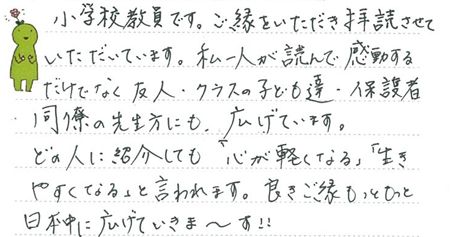 小学校教員です。ご縁をいただき拝読させて
いただいています。私一人が読んで感動する
だけでなく友人・クラスの子ども達・保護者
・同僚の先生方にも、広げています。
どの人に紹介しても「心が軽くなる」「生き
やすくなる」と言われます。良きご縁もっともっと
日本中に広げていきま〜す!!